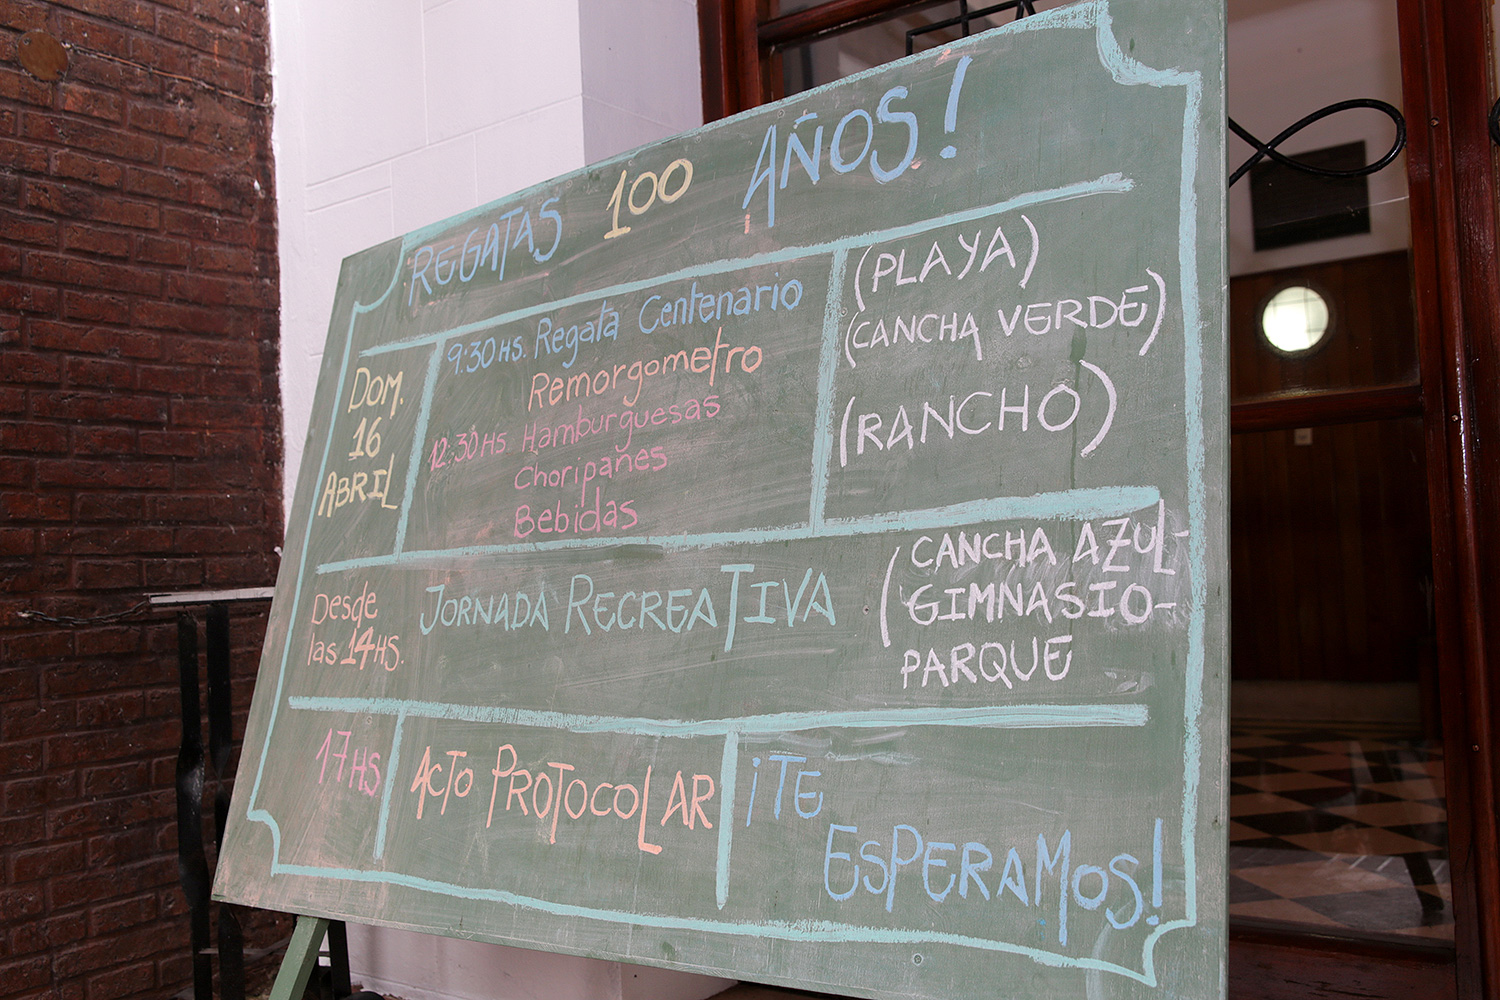 REGATAS 100 AÑOS!
DOM.
16
ABRIL
9:30HS. Regata Centenario
Remorgometro
12:30HS. Hamburguesas
Choripañes
Bebidas
(PLAYA)
(CANCHA VERDE)
(RANCHO)
Desde
las 14HS.
JORNADA RECREATIVA
(CANCHA AZUL-
GIMNASIO-
PARQUE
17HS
ACTO PROTOCOLAR
¡TE
ESPERAMOS!